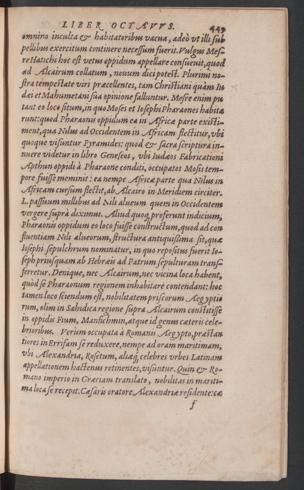 LIBER OCTAVVS. 449
omnino inculta & habitatoribus vacua, adeò vt illi sub
pellibus exercitum continere necessum fuerit. Vulgus Mes-
re Hatichi hoc est vetus oppidum appellare consueuit, quod
ad Alcairum collatum, nouum dici potest. Plurimi no-
stra tempestate viri præcellentes, tam Christiani quàm Iu
dæi et Mahumetani sua opinione falluntur. Mesre enim pu
tant eo loco situm, in quo Moses et Iosephi Pharaones habita
runt: quod Pharaonis oppidum ea in Africa parte existi-
ment, qua Nilus ad Occidentem in Africam flectitur, vbi
quoque visuntur Pyramides: quod & sacra scriptura in-
nuere videtur in libro Geneseos, vbi Iudæos Fabricationi
Apthun oppidi à Pharaone conditi, occupatos Mosis tem-
pore fuisse meminit: ea nempe Africæ parte qua Nilus in
Africam cursum flectit, ab Alcairo in Meridiem circiter.
L. passuum millibus ad Nili alueum quem in Occidentem
vergere suprà diximus. Aliud quoq; proferunt indicium,
Pharaonis oppidum eo loco fuisse constructum, quod ad con
fluentiam Nili alueorum, structura antiquissima sit, quæ
Iosephi sepulchrum nominatur, in quo repositus fuerit Io-
seph priusquam ab Hebræis ad Patrum sepulturam trans-
ferretur. Denique, nec Alcairum, nec vicina loca habent,
quòd se Pharaonum regionem inhabitare contendant: hoc
tamen loco sciendum est, nobilitatem priscorum Aegyptio
rum, olim in Sahidica regione supra Alcairum constitisse
in oppidis Fium, Manfichmin, atque id genus cæteris cele-
brioribus. Verùm occupata à Romanis Aegypto, præstan
tiores in Errifam se reduxere, nempe ad oram maritimam,
vbi Alexandria, Rosetum, aliæq; celebres vrbes Latinam
appellationem hactenus retinentes, visuntur. Quin & Ro-
mano imperio in Græciam translato, nobilitas in mariti-
ma loca se recepit: Cæsaris oratore Alexandriæ residente: cæ
f